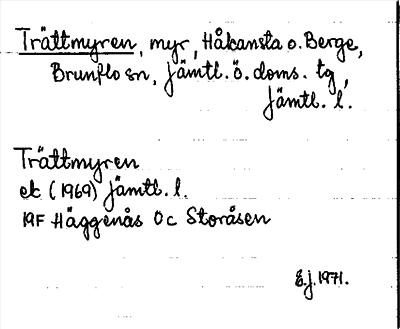 Trättmyren, myr, Håkansta o. Berge,
Brunflo sn, Jämtl. Ö. doms. tg,
Jämtl. l.
Trättmyren
ek (1969) Jämtl. l.
19F Häggenås 0c Storåsen
E.J. 1971.